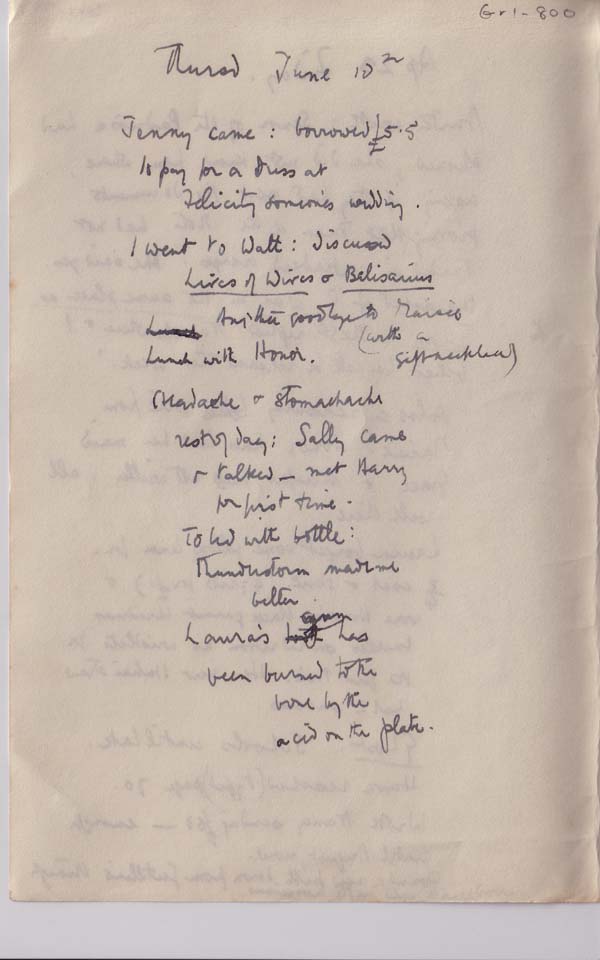 Gr1-800
Thursd June 10th
Jenny came: borrowed £5.5
to pay for a dress at
Felicity someone's wedding.
I went to Watt: discussed
Lives of Wives & Belisarius
Lunch Another goodbye to Maisie
(with a
Lunch with Honor. gift necklace)
Headache & stomachache
rest of day: Sally came
& talked - met Harry
for first time.
To bed with bottle:
thunderstorm made me
better.
gum
Laura's has
been burned to the
bone by the
acid on the plate.